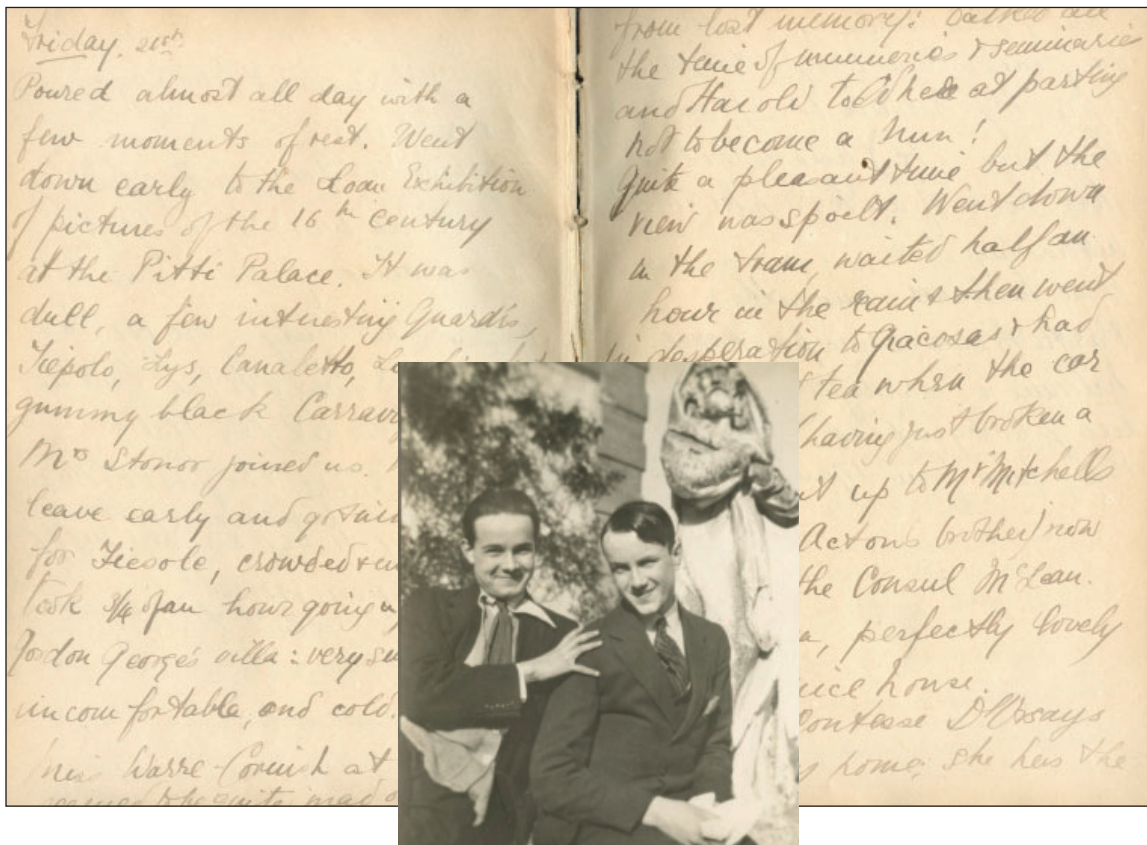 Friday. 21st
Poured almost all day with a
few moments of rest. Went
down early to the Loan Exhibition
of pictures of the 16th century
at the Pitti Palace. It was
dull, a few interesting Guardis,
Tiepolo, Lys, Canaletto,
gummy black
Mrs Stonor joined us.
leave early and
for Fiesole, crowded
took 3/4 of an hour going
Gordon George's villa: very
uncomfortable, and cold.
Miss Warre-Cornish at
seemed to be quite mad
from lost memory: talked all
the time of nunneries & seminaries
and Harold told her at parting
not to become a nun!
Quite a pleasant time but the
view was spoilt. Went down
in the tram, waited half an
hour in the rain & then went
in desperation to Giacosas & had
tea when the car
having just broken a
up to Mr Mitchells
Actons brother) now
the Consul McLean.
perfectly lovely
nice house.
Contesse D'Orsays
home; she has the